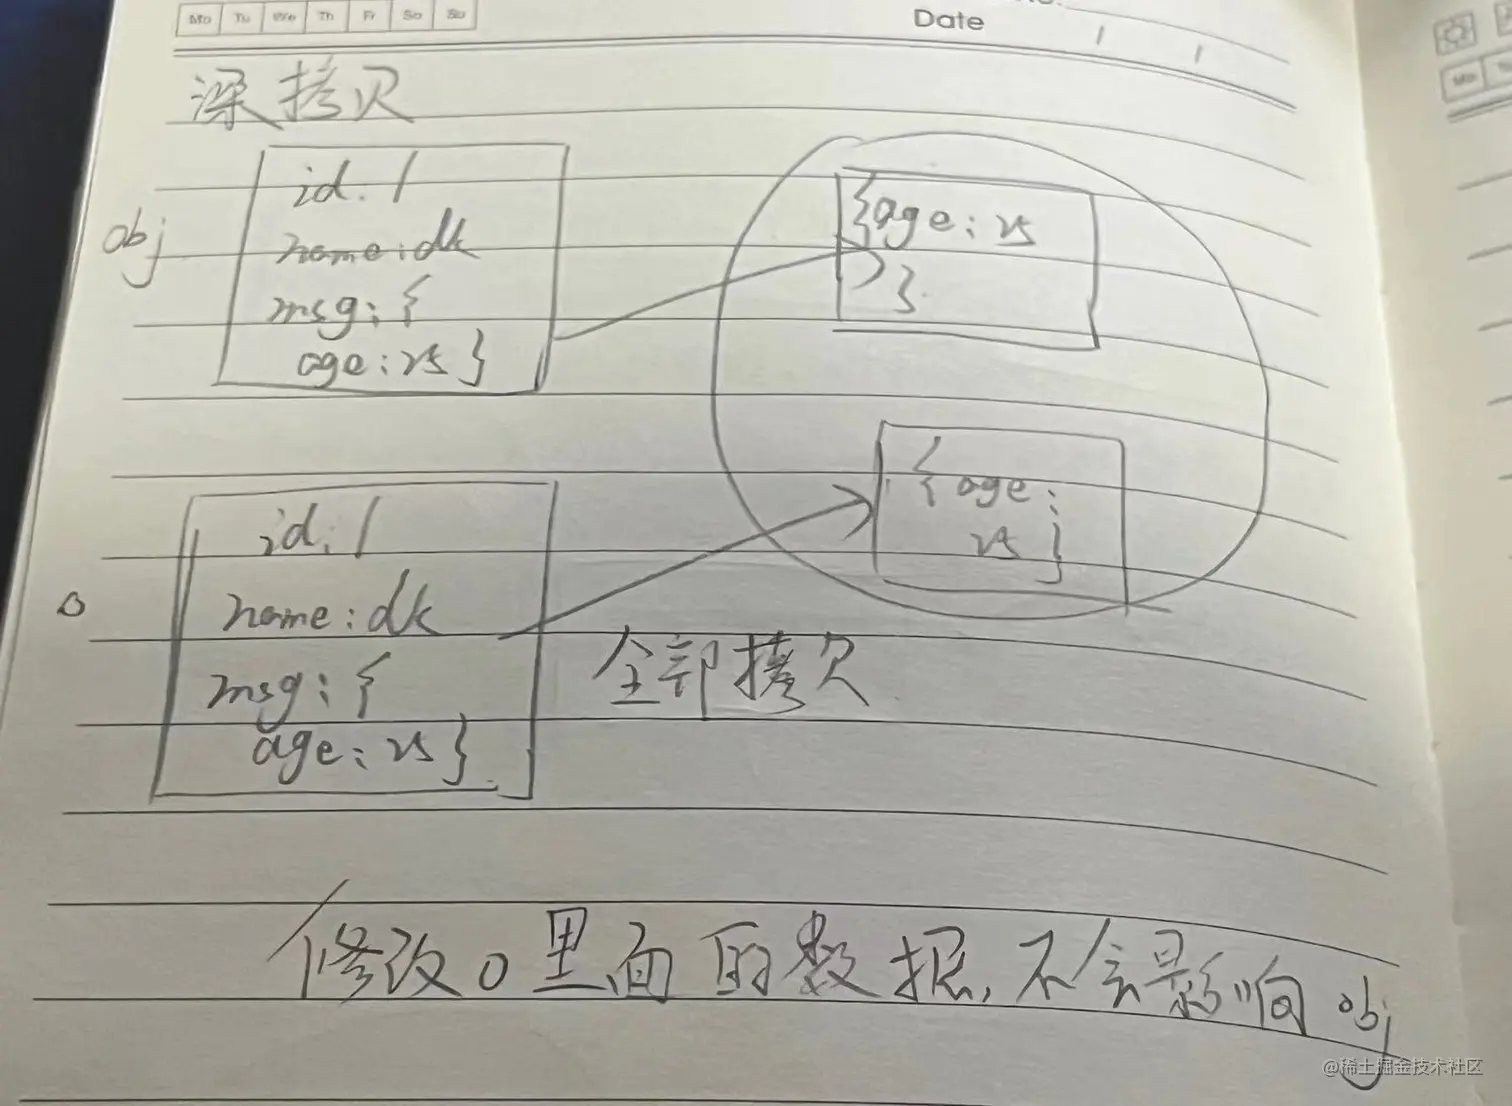 Mo Tu We Th Fr Sa Su
Date / /
深拷贝
obj
id: 1
name: dk
msg: {
age: 25 }
{age: 25
}
o
id: 1
name: dk
msg: {
age: 25 }
{ age:
25 }
全部拷贝
修改o里面的数据,不会影响obj
Mo
@稀土掘金技术社区